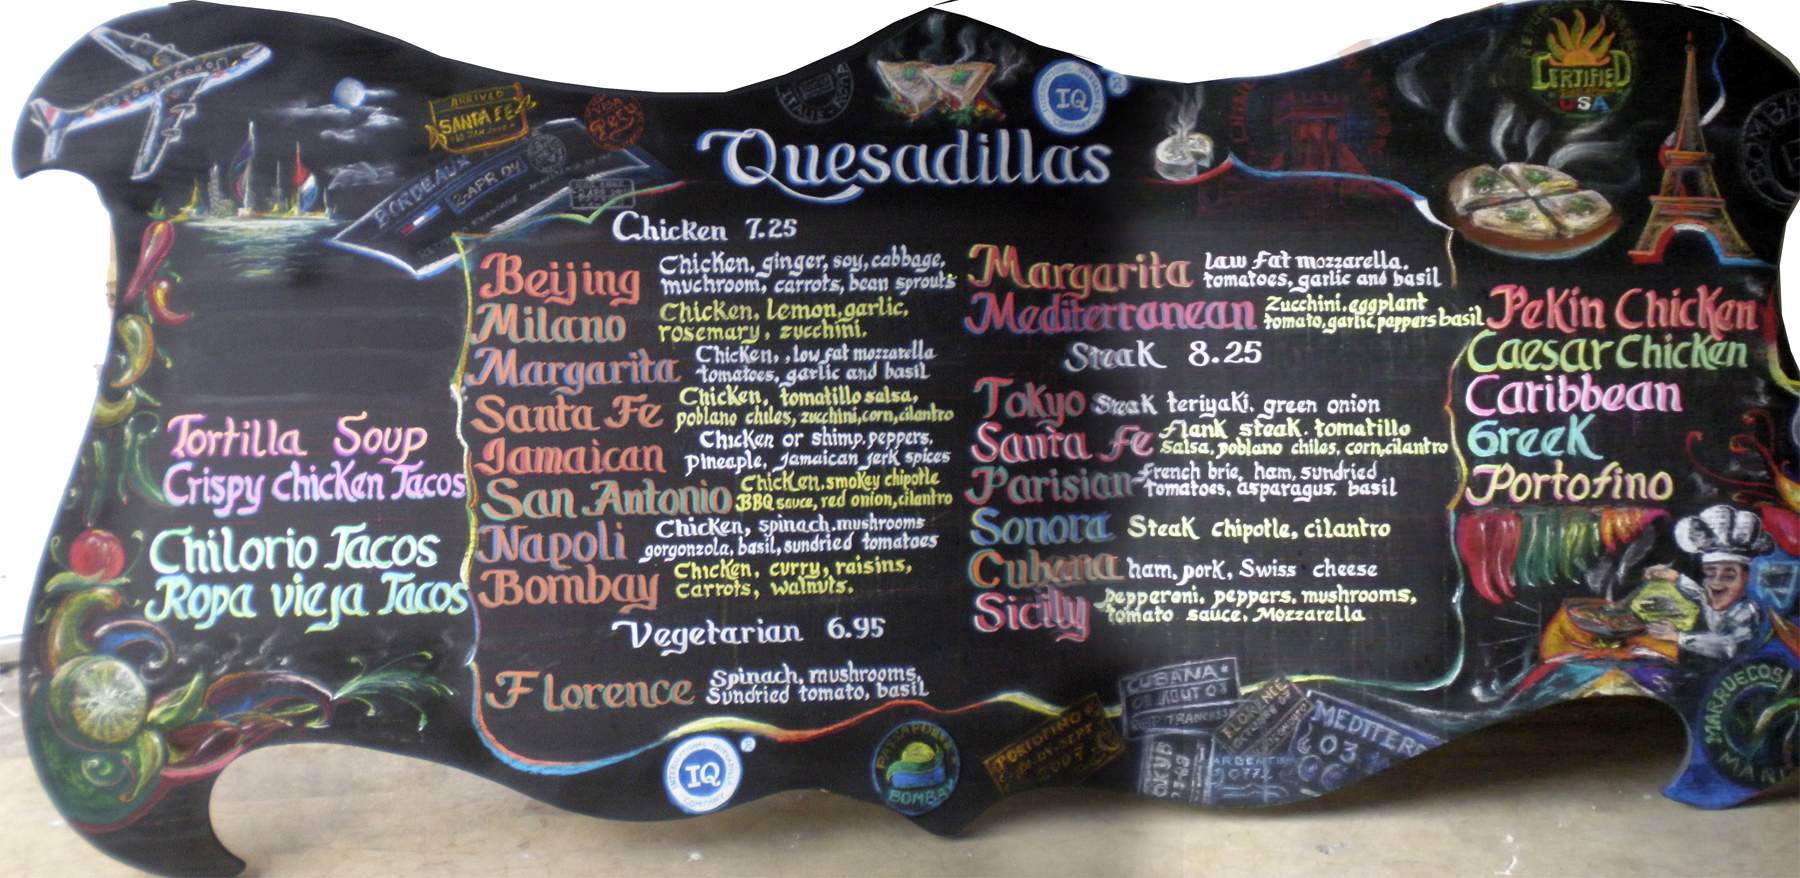 ARRIVED
SANTA FE
BORDEAUX
2-APR 04
IQ
COMPANY
CERTIFIED
USA
Quesadillas
Chicken 7.25
Beijing Chicken, ginger, soy, cabbage,
muchroom, carrots, bean sprouts
Milano Chicken, Lemon, garlic,
rosemary, zucchini.
Margarita Chicken, , low fat mozzarella
tomatoes, garlic and basil
Santa Fe Chicken, tomatillo salsa,
poblano chiles, zucchini, corn, cilantro
Jamaican Chicken or shimp. peppers,
pineaple, Jamaican jerk spices
San Antonio Chicken, smokey chipotle
BBQ sauce, red onion, cilantro
Napoli Chicken, spinach, mushrooms
gorgonzola, basil, sundried tomatoes
Bombay Chicken, curry, raisins,
Carrots, walnuts.
Vegetarian 6.95
Florence Spinach, mushrooms,
Sundried tomato, basil
Margarita Law fat mozzarella.
tomatoes, garlic and basil
Mediterranean Zucchini, eggplant
tomato, garlic, pappers basil
Steak 8.25
Tokyo Steak teriyaki, green onion
Santa fe flank steak, tomatillo
salsa, poblano chiles, corn, cilantro
Parisian french brie, ham, sundried
tomatoes, asparagus, basil
Sonora Steak chipotle, cilantro
Cubana ham, pork, Swiss cheese
Sicily pepperoni, peppers, mushrooms,
tomato sauce, Mozzarella
Tortilla Soup
Crispy chicken Tacos
Chilorio Tacos
Ropa vieja Tacos
Pekin Chicken
Caesar Chicken
Caribbean
Greek
Portofino
INTERNATIONAL QUESADILLA
IQ
COMPANY
BOMBAY
PORTOFINO
2007
CUBANA
AOUT 03
FLORENCE
MEDITERR
03
ARGENTINA
MARRUECOS